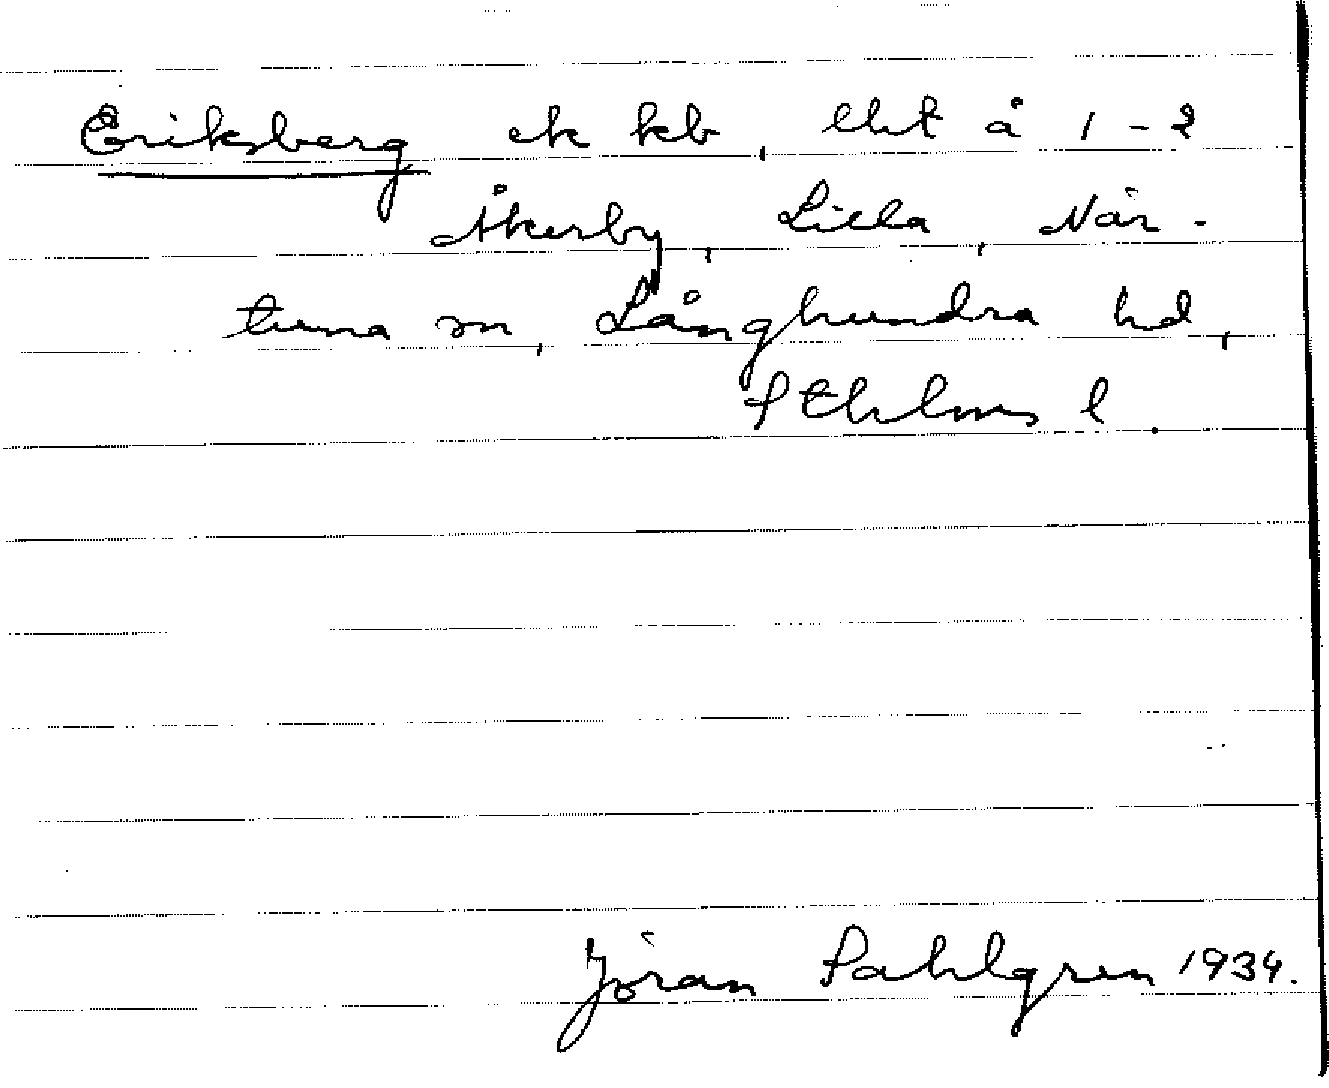 Eriksberg ek kb, lht å 1-2
Åkerby, Lilla, När-
tuna sn, Långhundra hd,
Sthlms l.
Jöran Sahlgren 1934.